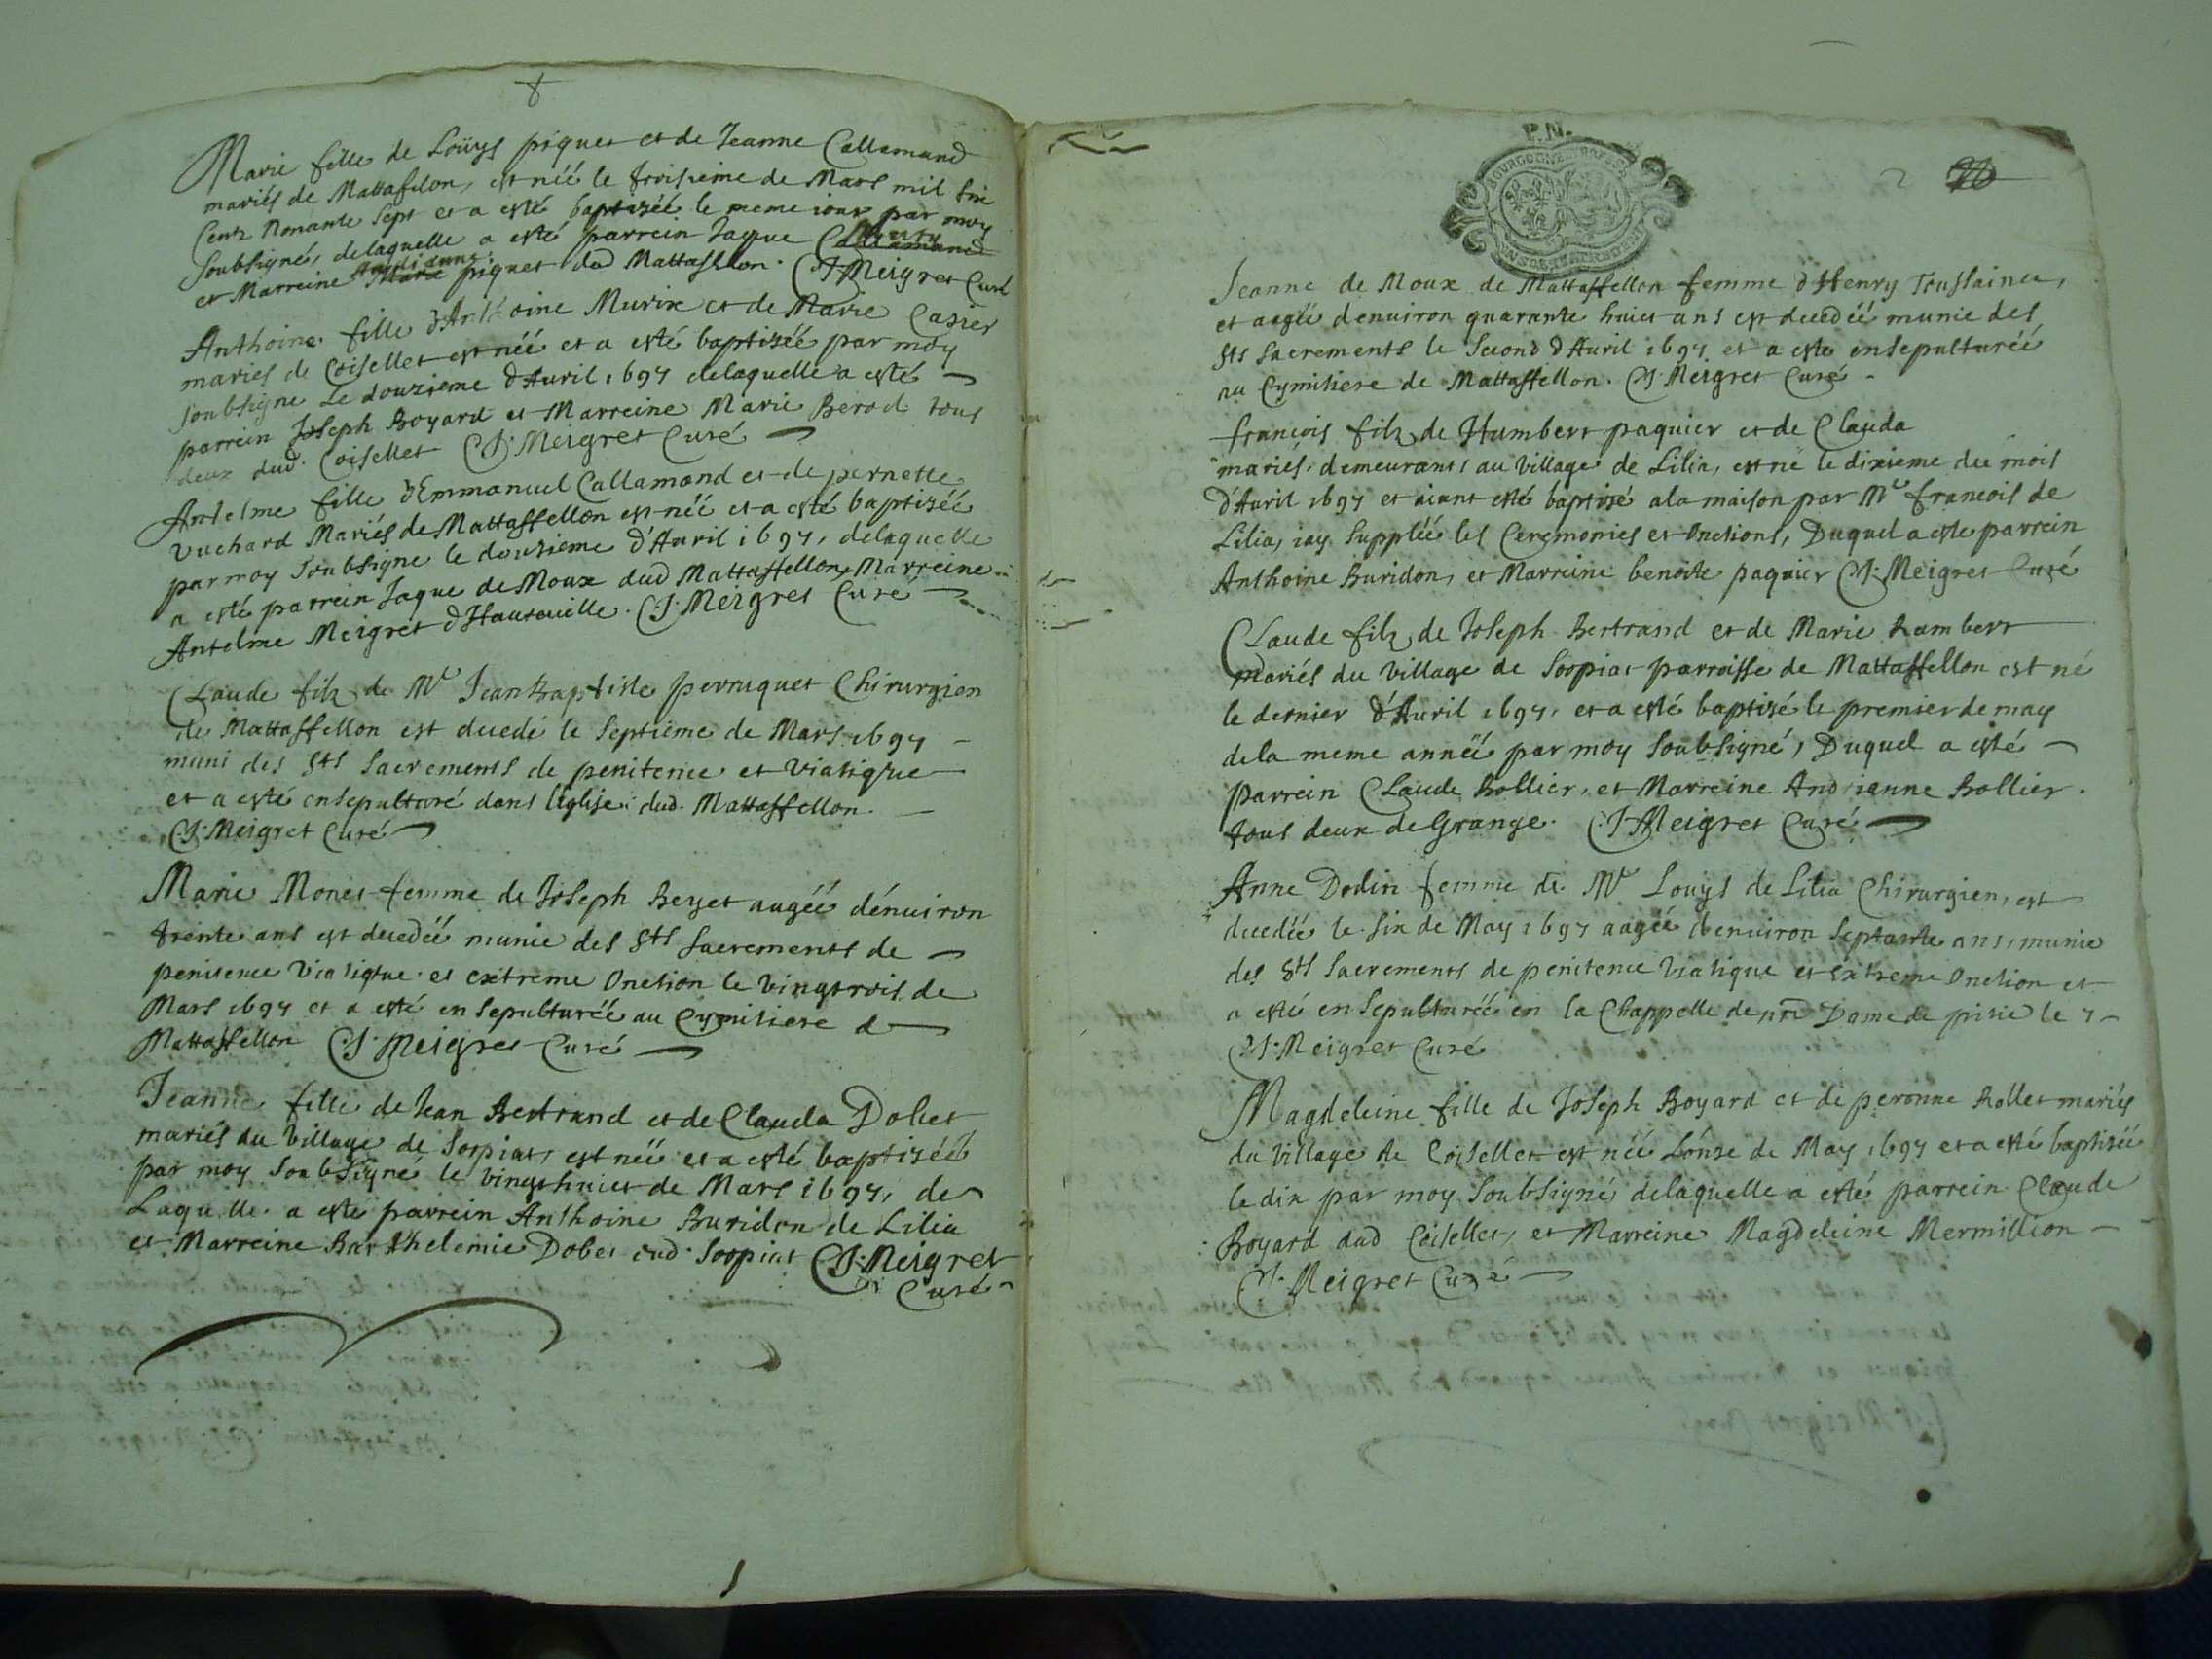 Marie fille de Loüys piquet et de Jeanne Callamand
mariés de Mattafelon, est néé le troisieme de Mars mil six
Cent Nonante Sept et a esté baptizéé le meme iour par moy
soubsigné, delaquelle a esté parrein Jaque Callamand
et Marreine piquet dud Mattafellon. C. J. Meigret Curé
Anthoine fille d'Anthoine Murix et de Marie Casier
mariés de Coisellet est néé et a esté baptizéé par moy
soubsigne Le douzieme d'Auril 1697 delaquelle a esté
parrein Joseph Boyard et Marreine Marie Berod tous
deux dud. Coisellet C. J. Meigret Curé
Antelme fille d'Emmanuel Callamand et de pernette
Vuchard Mariés de Mattaffellon est néé et a esté baptizéé
par moy soubsigne le douzieme d'Auril 1697, delaquelle
a esté parrein Jaque de Moux dud Mattaffellon, Marreine
Antelme Meigret d'Hauteuille. C. J. Meigret Curé
Claude filz de Mre Jean Baptiste perruquet Chirurgien
de Mattaffellon est decedé le Septieme de Mars 1697
muni des Sts Sacrements de penitence et Viatique
et a esté ensepulturé dans l'eglise dud. Mattaffellon.
C. J. Meigret Curé
Marie Monet femme de Joseph Beyet augéé d'enuiron
trente ans est decedéé munie des Sts Sacrements de
penitence Viatique et extreme Onction le vingtrois de
Mars 1697 et a esté ensepulturéé au Cymitiere de
Mattaffellon C. J. Meigret Curé
Jeanne fille de Jean Bertrand et de Clauda Dobet
mariés du Village de Sorpiat, est néé et a esté baptizéé
par moy Soubsigné le vingthuict de Mars 1697, de
Laquelle a esté parrein Anthoine Buridon de Lilia
et Marreine Barthelemie Dobet dud. Sorpiat C. J. Meigret
Curé
P.N.
2
Jeanne de Moux de Mattaffellon femme d'Henry Toussainct,
et aegéé d'enuiron quarante huict ans est decedéé munie des
Sts Sacrements le Second d'Auril 1697 et a esté ensepulturéé
au Cymitiere de Mattaffellon. C. J. Meigret Curé
François filz de Humbert paquier et de Clauda
mariés, demeurants au Village de Lilia, est né le dixieme du mois
d'Auril 1697 et aiant esté baptizé a la maison par Mre François de
Lilia, iay suppléé les Ceremonies et Onctions, Duquel a esté parrein
Anthoine Buridon, et Marreine benoite paquier C. J. Meigret Curé
Claude filz de Joseph Bertrand et de Marie Rambert
mariés du Village de Sorpiat parroisse de Mattaffellon est né
le dernier d'Auril 1697, et a esté baptizé le premier de may
dela meme annéé par moy Soubsigné, Duquel a esté
parrein Claude Bollier, et Marreine Andrianne Bollier.
tous deux de Grange. C. J. Meigret Curé
Anne Dodin femme de Mre Louys de Lilia Chirurgien, est
decedéé le six de May 1697 aagéé d'enuiron Septante ans, munie
des Sts Sacrements de penitence Viatique et Extreme Onction et
a esté ensepulturéé en la Chappelle de nre Dame de pitié le 7
C. J. Meigret Curé
Magdeleine fille de Joseph Boyard et de peronne Rollet mariés
du Village de Coisellet est néé L'ónze de May 1697 et a esté baptizéé
le dix par moy Soubsigné, delaquelle a esté parrein Claude
Boyard dud Coisellet, et Marreine Magdeleine Mermillion
C. J. Meigret Curé